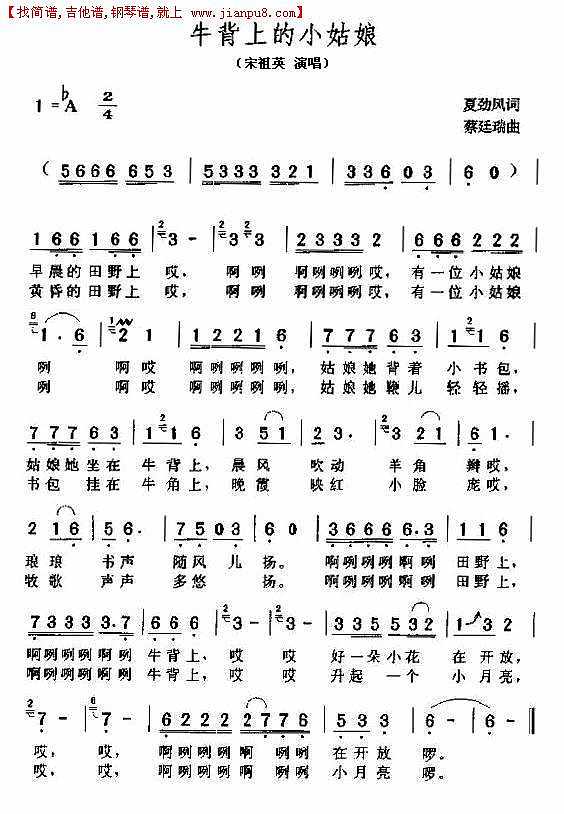 【找简谱,吉他谱,钢琴谱,就上 www.jianpu8.com】
牛背上的小姑娘
（宋祖英 演唱）
1=♭A 2/4
夏劲风词
蔡廷瑞曲
（5666 653 | 5333 321 | 33603 | 60）|
166 166 | 23 - | 23 23 | 23332 | 666 222 |
早晨的田野上 哎, 啊咧 啊咧咧咧哎, 有一位小姑娘
黄昏的田野上 哎, 啊咧 啊咧咧咧哎, 有一位小姑娘
61·6 | 121 | 12216 | 77763 | 226 |
咧 啊哎 啊咧咧咧咧, 姑娘她背着 小书包,
咧 啊哎 啊咧咧咧咧, 姑娘她鞭儿 轻轻摇,
77763 | 2116 | 351 | 23· | 2321 | 61· |
姑娘她坐在 牛背上, 晨风 吹动 羊角 辫哎,
书包 挂在 牛角上, 晚霞 映红 小脸 庞哎,
216 | 56· | 7503 | 60 | 36666·3 | 116 |
琅琅 书声 随风儿 扬。 啊咧咧咧啊咧 田野上,
牧歌 声声 多悠 扬。 啊咧咧咧啊咧 田野上,
73333·7 | 666 | 23 23 | 335532 | 132 |
啊咧咧咧啊咧 牛背上, 哎 哎 好一朵小花 在开放,
啊咧咧咧啊咧 牛背上, 哎 哎 升起一个 小月亮,
27 - | 27 - | 6222 2776 | 533 | 6 - | 6 - ‖
哎, 哎, 啊咧咧咧啊 咧咧 在开放 啰。
哎, 哎, 啊咧咧咧啊 咧咧 小月亮 啰。